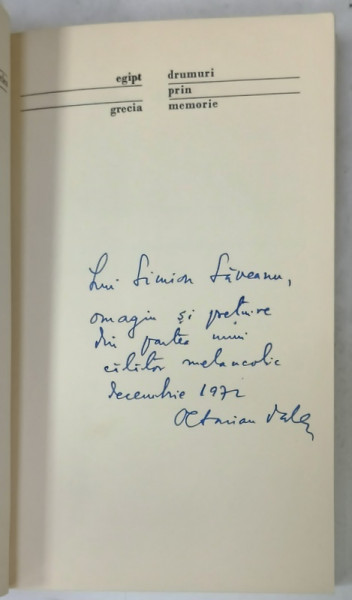 egipt drumuri
prin
grecia memorie
Lui Simion Săveanu,
omagiu și prețuire
din partea unui
călător melancolic
decembrie 1972
Octavian